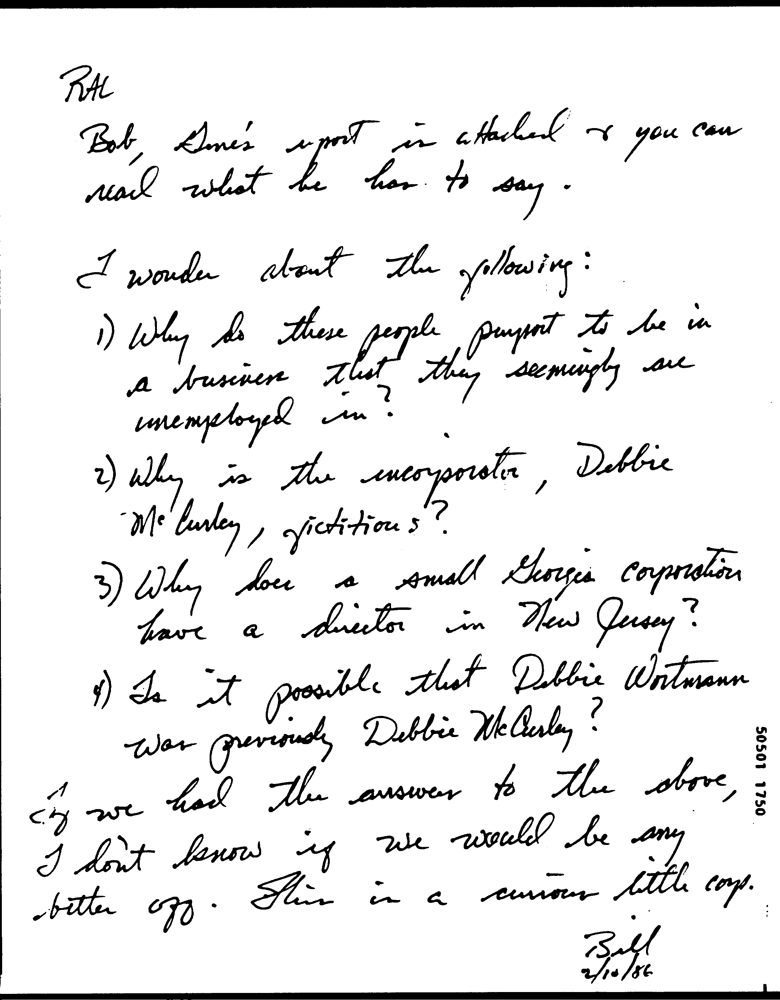 RAL
Bob, Gene's report is attached & you can
read what he has to say.
I wonder about the following:
1) Why do these people purport to be in
a business that they seemingly are
unemployed in?
2) Why is the incorporator, Debbie
McCurley, fictitious?
3) Why does a small Georgia corporation
have a director in New Jersey?
4) Is it possible that Debbie Wortmann
was previously Debbie McCurley?
If we had the answers to the above,
I don't know if we would be any
better off. This is a curious little corp.
Bill
2/10/86
50501 1750